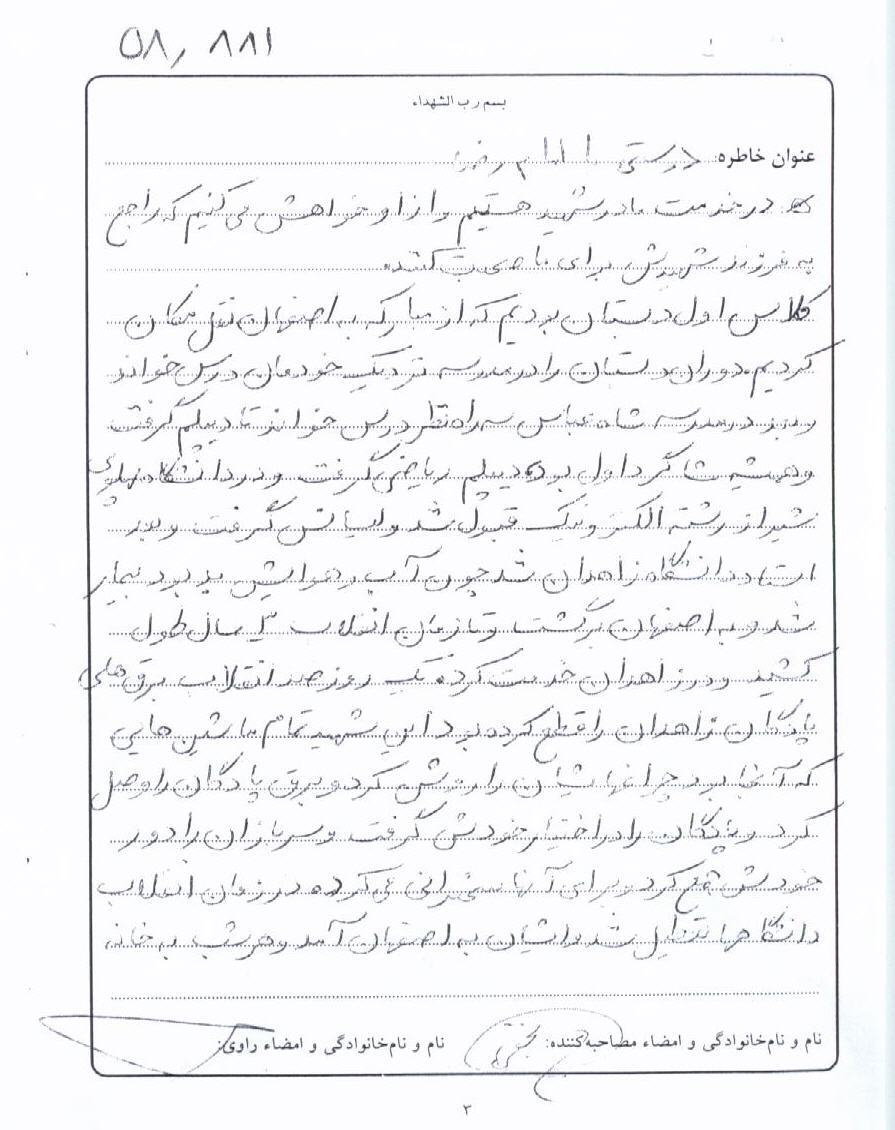 ۵۸,۸۸۱
بسم رب الشهداء
عنوان خاطره: درستی با امام رضا
در خدمت مادر شهید هستیم و از او خواهش می کنیم که راجع
به فرزند شهیدش برای ما صحبت کنند.
کلاس اول دبستان بودیم که از مبارکه به اصفهان نقل مکان
کردیم. دوران دبستان را در مدرسه نزدیک خودمان درس خواند
و بعد در مدرسه شاه عباس سه راه نظر درس خواند تا دیپلم گرفت
و همیشه شاگرد اول بود دیپلم ریاضی گرفت و در دانشگاه پهلوی
شیراز رشته الکترونیک قبول شد و لیسانس گرفت و بعد
استاد دانشگاه زاهدان شد چون آب و هوایش بد بود بیمار
شد و به اصفهان برگشت و تا زمان انقلاب ۳ سال طول
کشید و در زاهدان خدمت کرد. یک روز ضد انقلاب برق های
پادگان زاهدان را قطع کرده بود این شهید تمام ماشین هایی
که آنجا بود چراغهایشان را روشن کرد و برق پادگان را وصل
کرد و پادگان را در اختیار خودش گرفت و سربازان را دور
خودش جمع کرد و برای آنها سخنرانی می کرد. در زمان انقلاب
دانشگاهها تعطیل شد و ایشان به اصفهان آمد و هر شب به خانه
نام و نام خانوادگی و امضاء مصاحبه کننده:
نام و نام خانوادگی و امضاء راوی:
۳